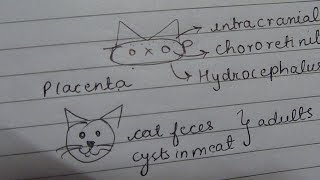 intracranial
chororetinit
Hydrocephalus
Placenta
cat feces
adults
cysts in meat